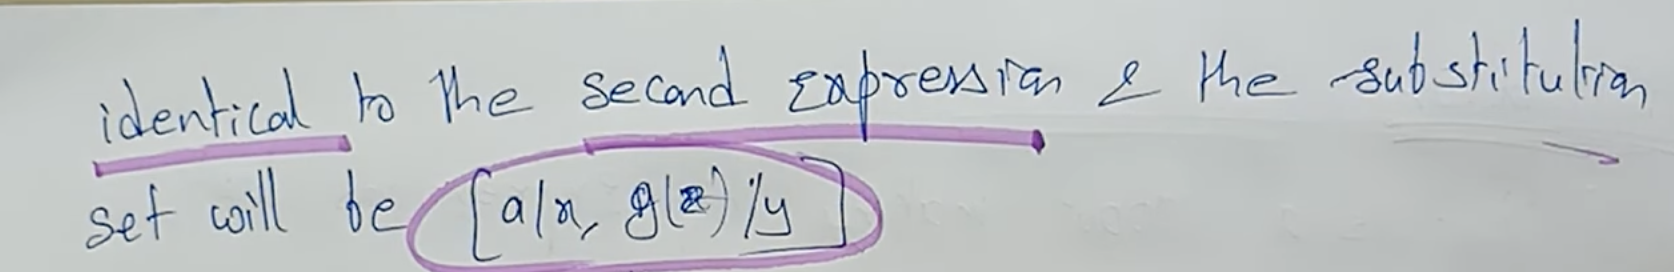 identical to the second Expression & the substitution
set will be [a/x, g(z)/y]